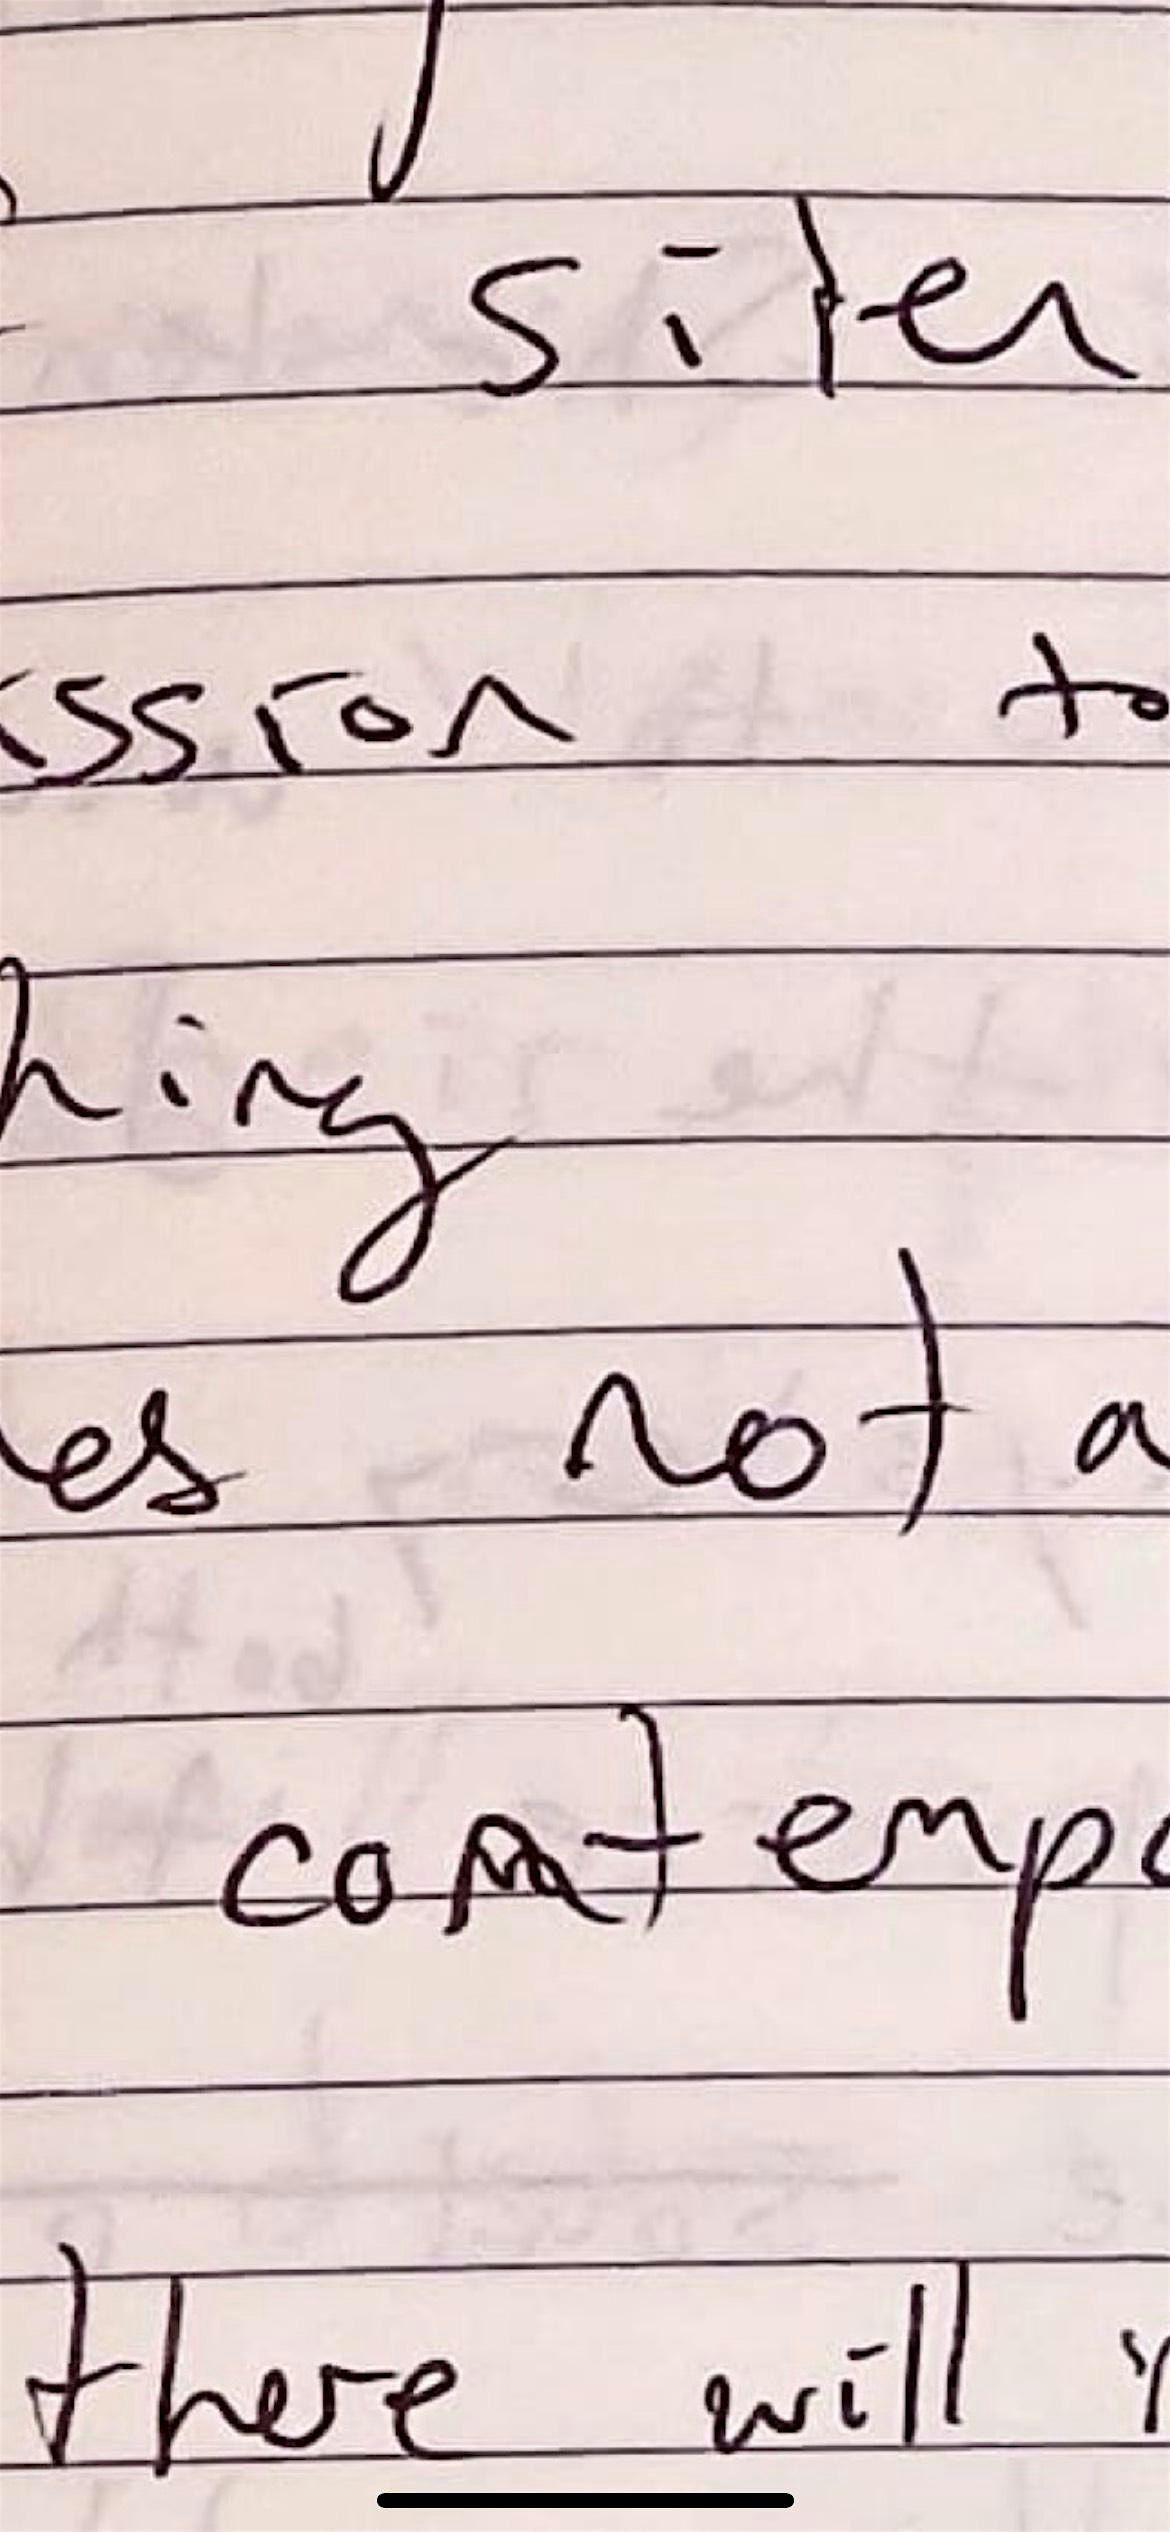 silen
ission to
hing
es not a
contempo
there will